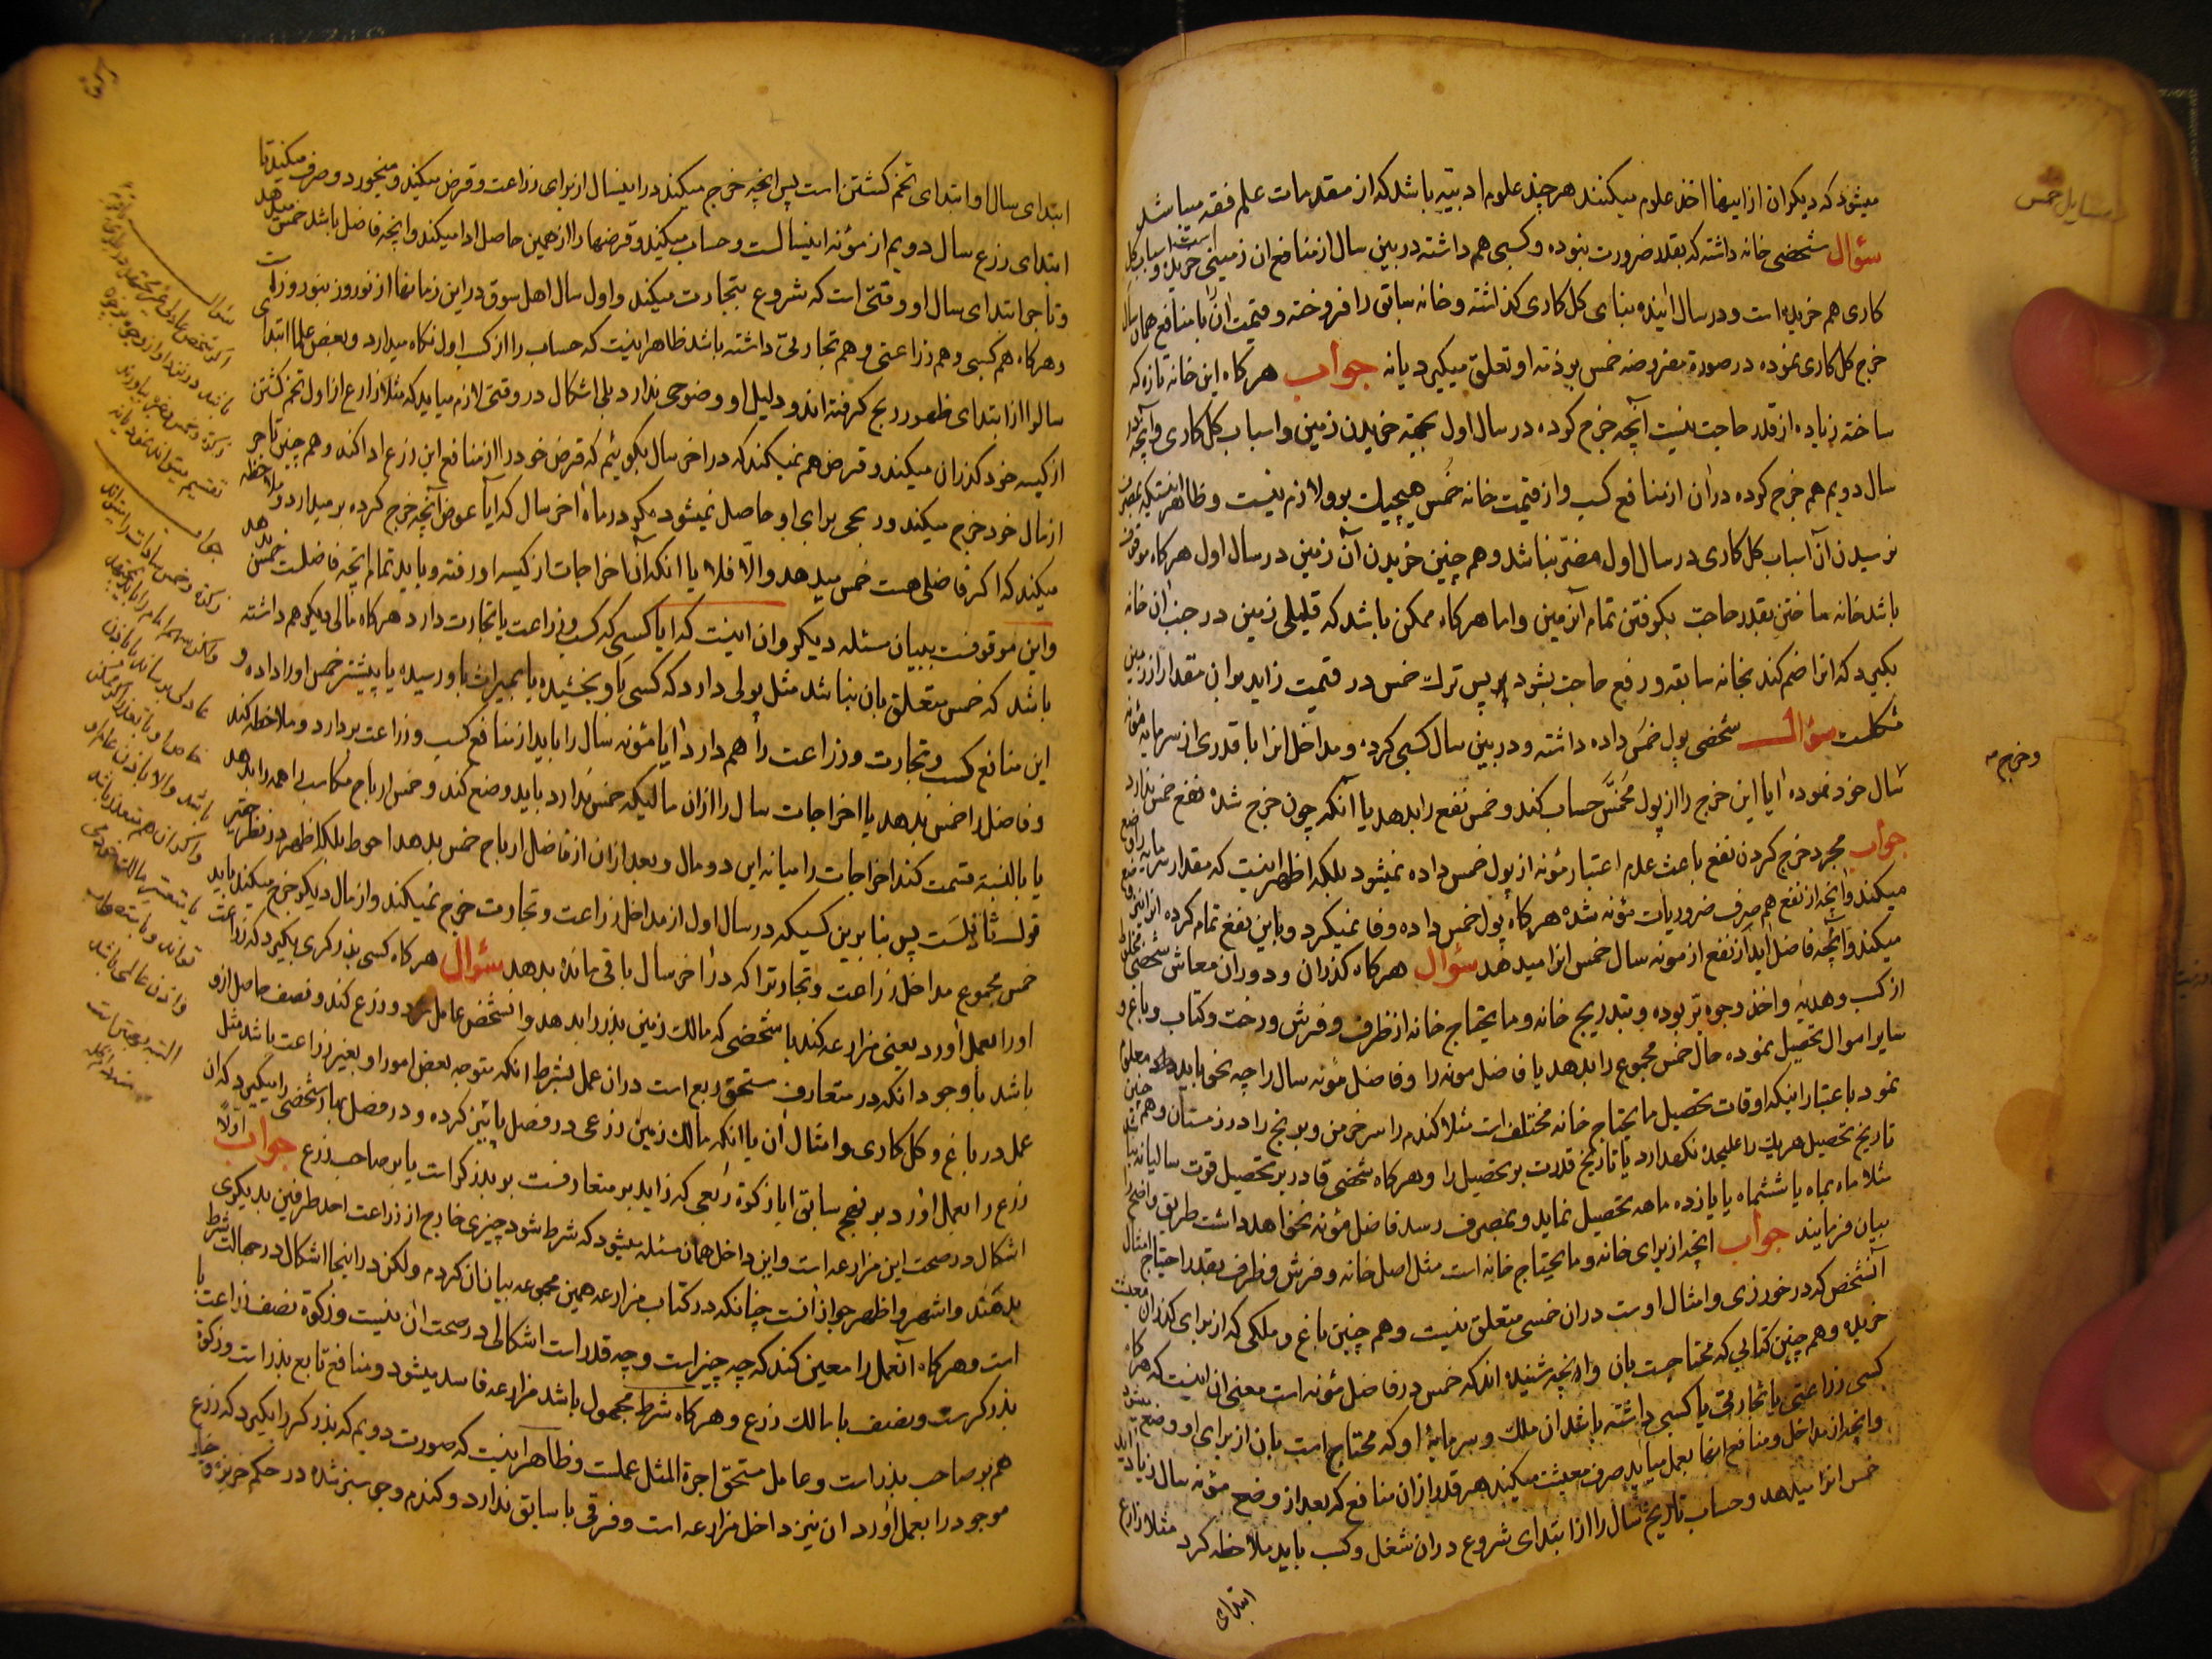 مسایل خمس
میشود که دیکران از اینها اخذ علوم میکنند هر چند علوم ادبیّه باشد که از مقدمات علم فقه میباشد
سؤال شخصی خانه داشته که بقدر ضرورت نبوده و کسبی هم داشته در بین سال از منافع ان زمینی خریده و اسباب کل
کاری هم خریده است و در سال اینده بنای کل کاری کذاشته و خانه سابق را فروخته و قیمت ان را با منافع همان سال
خرج کل کاری نموده در صورة مفروضه خمس بر ذمه او تعلق میکیرد یا نه جواب هر کاه این خانه تازه که
ساخته زیاده از قدر حاجت نیست آنچه خرج کرده در سال اول بجهة خریدن زمین و اسباب کل کاری و آنچه در
سال دویم هم خرج کرده در ان از منافع کسب و از قیمت خانه خمس هیچیک بر او لازم نیست و ظاهر اینستکه بمصرف
نرسیدن آن اسباب کل کاری در سال اول مضرّ نباشد و هم چنین خریدن آن زمین در سال اول هر کاه موقوف
باشد خانه ساختن بقدر حاجت بکرفتن تمام آن زمین و اما هر کاه ممکن باشد که قلیلی زمین در جنب ان خانه
بکیرد که انرا ضم کند بخانه سابقه و رفع حاجت بشود پس ترک خمس در قیمت زاید بر ان مقدار از زمین
مشکلست سؤال شخصی پول خمس داده داشته و در بین سال کسبی کرده و مداخل انرا با قدری از سرمایه مؤنه
و خرج مـ
سال خود نموده ایا این خرج را از پول مخمّس حساب کند و خمس نفع را بدهد یا آنکه چون خرج شده نفع خمس ندارد
جواب مجرد خرج کردن نفع باعث عدم اعتبار مؤنه از پول خمس داده نمیشود بلکه اظهر اینست که مقدار سرمایه را وضع
میکند و انچه از نفع هم صرف ضروریات مؤنه شده هر کاه پول خمس داده وفا نمیکرد و باین نفع تمام کرده انرا نیز وضع
میکند و آنچه فاضل اید از نفع از مونه سال خمس انرا میدهد سؤال هر کاه کذران و دوران معاش شخصی مختلط
از کسب و هدیه و اخذ وجوه بر بوده و بتدریج خانه و ما یحتاج خانه از ظرف و فرش و رخت و کتاب و باغ و
سایر اموال تحصیل نموده حال خمس مجموع را بدهد یا فاضل مونه را و فاضل مؤنه سال را چه نحو باید معلوم
نمود باعتبار اینکه اوقات تحصیل ما یحتاج خانه مختلف است مثلا کندم را سر خرمن و برنج را در زمستان و هم چنین
تاریخ تحصیل هر یک را علیحده نکهدارد یا تاریخ قدرت بر تحصیل را و هر کاه شخصی قادر بر تحصیل قوت سالیانه نباشد
مثلا ماه بماه یا ششماه یا یازده ماهه تحصیل نماید و بمصرف رسد فاضل مؤنه نخواهد داشت طریق واضح را
بیان فرمایند جواب انچه از برای خانه و ما یحتاج خانه است مثل اصل خانه و فرش و ظرف بقدر احتیاج امثال
آنشخص که در خور زی و امثال اوست در ان خمسی متعلق نیست و هم چنین باغ و ملکی که از برای کذران معیشت
خریده و هم چنین کتابی که محتاجست بان و انچه شنیده اند که خمس در فاضل مؤنه است معنی ان اینست که هر کاه
کسی زراعتی یا تجارتی یا کسبی داشته باشد ان ملک و سرمایهٔ او که محتاج است بان از برای او وضع میشود
و انچه از مداخل و منافع انها بعمل میاید صرف معیشت میکند هر قدر از ان منافع که بعد از وضع مؤنه سال زیاد اید
خمس انرا میدهد و حساب تاریخ سال را از ابتدای شروع در ان شغل و کسب باید ملاحظه کرد مثلا زارع
ابتدای
ابتدای سال او ابتدای تخم کشتن است پس انچه خرج میکند در اینسال از برای زراعت و قرض میکند و میخورد و صرف میکند تا
ابتدای زرع سال دویم از مؤنه اینسالست و حساب میکند و قرضها را از همین حاصل ادا میکند و انچه فاضل باشد خمس میدهد
و تاجر ابتدای سال او وقتی است که شروع بتجارت میکند و اول سال اهل سوق در این زمانها از نوروز بنوروز است
و هر کاه هم کسبی و هم زراعتی و هم تجارتی داشته باشد ظاهر اینست که حساب را از کسب اول نکاه میدارد و بعض علما ابتدای
سال را از ابتدای ظهور ربح کرفته اند و دلیل او وضوحی ندارد بلی اشکال در وقتی لازم میاید که مثلا زارع از اول تخم کشتن
از کیسه خود کذران میکند و قرض هم نمیکند که در اخر سال بکوئیم که قرض خود را از منافع این زرع ادا کند و هم چنین تاجر
از مال خود خرج میکند و ربحی برای او حاصل نمیشود مکر در ماه آخر سال که ایا عوض آنچه خرج کرده بر میدارد و ملاحظه
میکند که اکر فاضلی هست خمس میدهد و الّا فلا یا انکه آن اخراجات از کیسه او رفته و باید تمام انچه فاضلست خمس بدهد
و این موقوفست ببیان مسئله دیکر و ان اینست که ایا کسی که کسب و زراعت یا تجارت دارد هر کاه مالی دیکر هم داشته
باشد که خمس متعلق بان نباشد مثل پولی دارد که کسی باو بخشیده یا بمیراث باو رسیده یا پیشتر خمس او را داده و
این منافع کسب و تجارت و زراعت را هم دارد ایا مؤنه سال را باید از منافع کسب و زراعت بردارد و ملاحظه کند
و فاضل را خمس بدهد یا اخراجات سال را از ان مالیکه خمس ندارد باید وضع کند و خمس ارباح مکاسب را همه را بدهد
یا بالنسبة قسمت کند اخراجات را میانه این دو مال و بعد از ان از فاضل ارباح خمس بدهد احوط بلکه اظهر در نظر حقیر
قول ثانیست پس بنابرین کسیکه در سال اول از مداخل زراعت و تجارت خرج نمیکند و از مال دیکر خرج میکند باید
خمس مجموع مداخل زراعت و تجارترا که در آخر سال باقی مانده بدهد سؤال هر کاه کسی بذر کری بکیرد که زراعت
او را بعمل آورد یعنی مزارعه کند با شخصی که مالک زمین بذر را بدهد و انشخص عامل و زرع کند و نصف حاصل از او
باشد با وجود انکه در متعارف مستحق ربع است در ان عمل بشرط انکه متوجه بعض امور او بغیر زراعت باشد مثل
عمل در باغ و کل کاری و امثال ان یا انکه مالک زمین زرعی در فصل پائیز کرده و در فصل بهار شخصی را میکیرد که ان
زرع را بعمل آورد بر نهج سابق ایا زکوة ربعی که زاید بر متعارفست بر بذر کر است یا بر صاحب زرع جواب اولاً
اشکال در صحت این مزارعه است و این داخل همان مسئله میشود که شرط شود چیزی خارج از زراعت احد طرفین بدیکری
بدهند و اشهر و اظهر جواز انست چنانکه در کتاب مزارعه همین مجموعه بیان ان کردم ولکن در اینجا اشکال در جهالت شرط
است و هر کاه آنعمل را معین کند که چه چیز است و چه قدر است اشکالی در صحت ان نیست و زکوة نصف زراعت با
بذر کرست و نصف با مالک زرع و هر کاه شرط مجهول باشد مزارعه فاسد میشود و منافع تابع بذر است و زکوة
هم بر صاحب بذر است و عامل مستحق اجرة المثل عملست و ظاهر اینست که صورت دویم که بذر کر را بکیرد که زرع
موجود را بعمل آورد ان نیز داخل مزارعه است و فرقی با سابق ندارد و کندم و جو سبز شده در حکم خربزه و خیار
سؤال
جواب